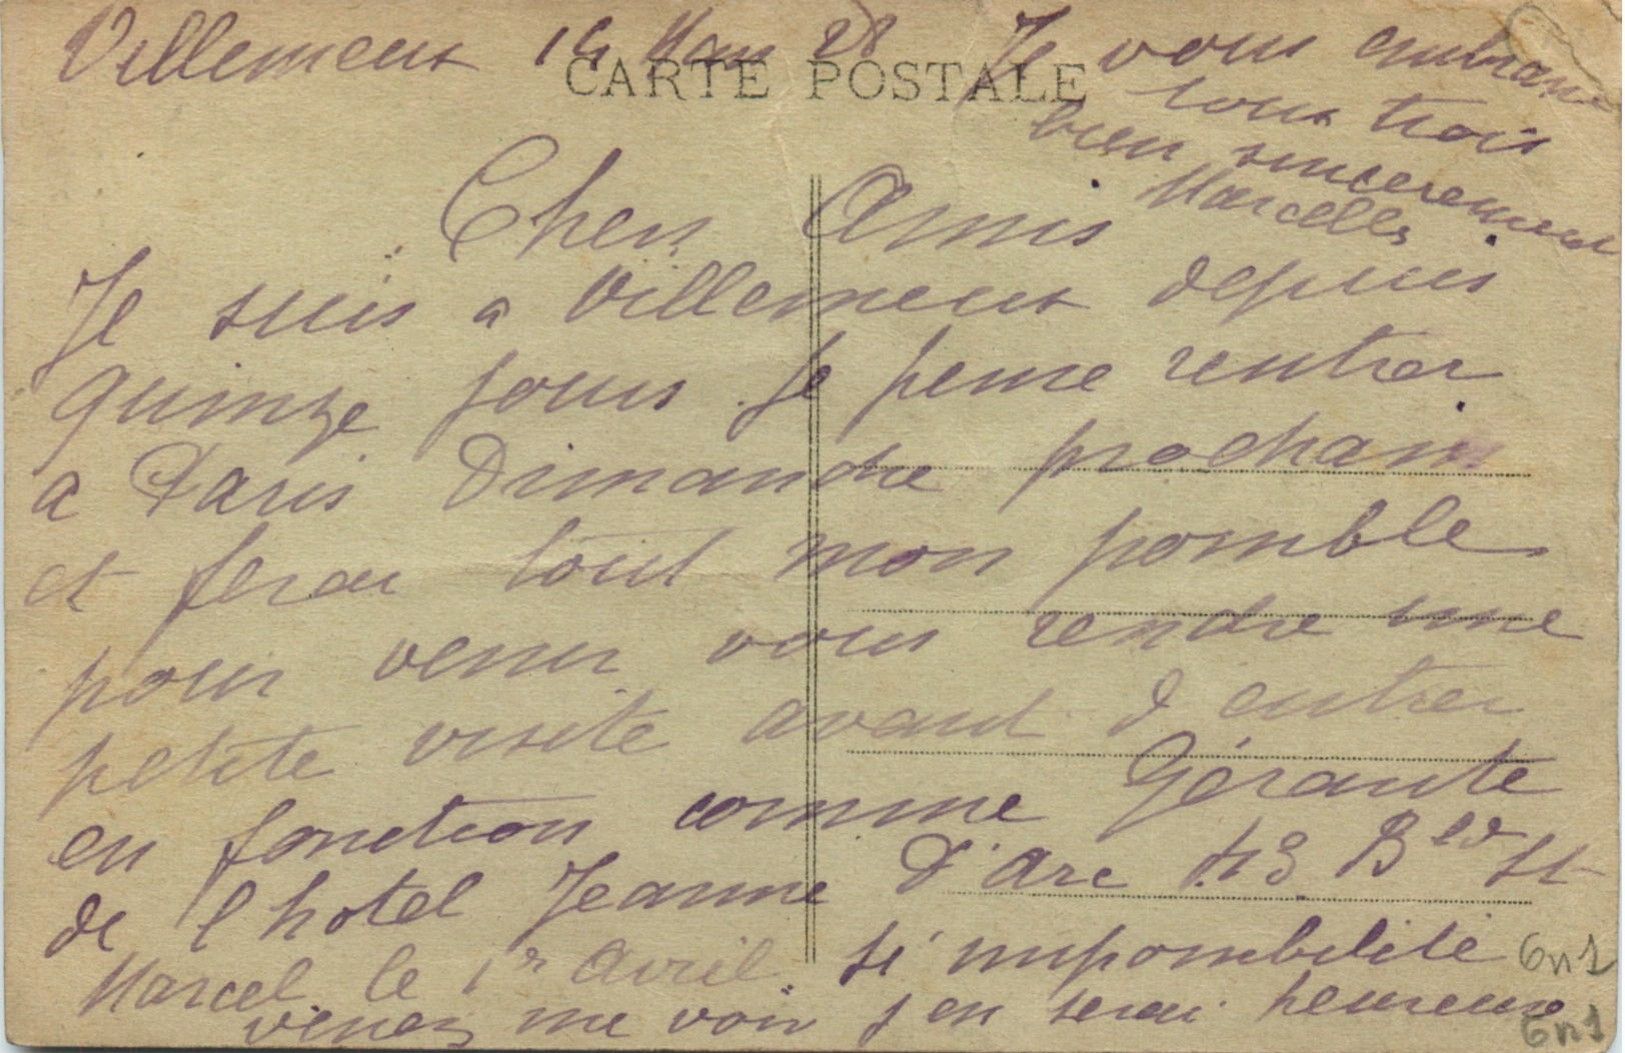 Villemeux 14 Mars 28
CARTE POSTALE
Chers Amis
Je suis a Villemeux depuis
quinze jours. Je pense rentrer
a Paris Dimanche prochain
et ferai tout mon possible
pour venir vous rendre une
petite visite avant d'entrer
en fonction comme Gérante
de l'hotel Jeanne D'Arc 43 Bed St
Marcel le 1er Avril. Si impossibilité
venez me voir j'en serai heureuse
Je vous embrasse
tous trois
bien sincerement
Marcelle
6n1
6n1